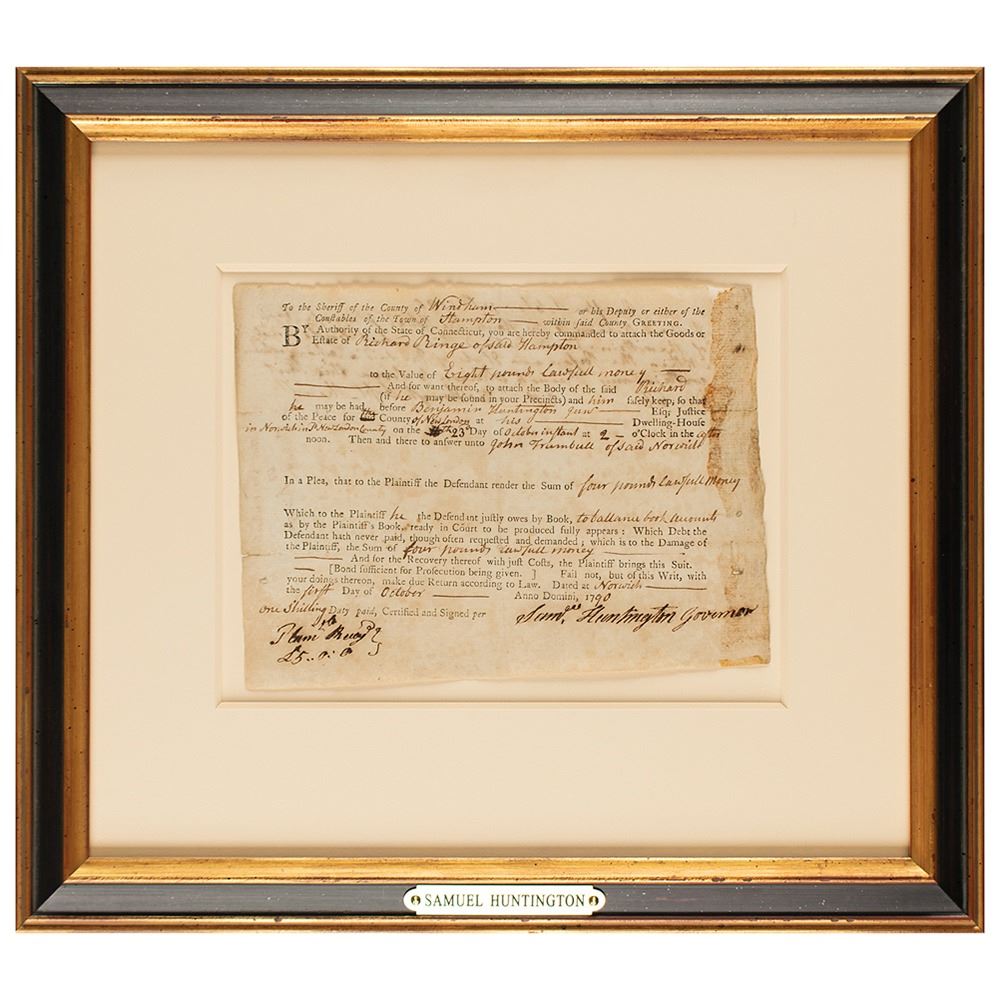 To the Sheriff of the County of Windham or his Deputy or either of the
Constables of the Town of Hampton within said County GREETING.
BY Authority of the State of Connecticut, you are hereby commanded to attach the Goods or
Estate of Richard Ringe of said Hampton
to the Value of Eight pounds Lawfull money
And for want thereof, to attach the Body of the said Richard
(if he may be found in your Precincts) and him safely keep, so that
he may be had before Benjamin Huntington Junr Esq; Justice
of the Peace for County of New London at his Dwelling-House
in Norwich in sd New London County on the 23d Day of October instant at 2 o'Clock in the after
noon. Then and there to answer unto John Trumbull of said Norwich
In a Plea, that to the Plaintiff the Defendant render the Sum of four pounds Lawfull money
Which to the Plaintiff he the Defendant justly owes by Book, to ballance book accounts
as by the Plaintiff's Book, ready in Court to be produced fully appears: Which Debt the
Defendant hath never paid, though often requested and demanded; which is to the Damage of
the Plaintiff, the Sum of four pounds lawfull money
And for the Recovery thereof with just Costs, the Plaintiff brings this Suit.
[Bond sufficient for Prosecution being given. ] Fail not, but of this Writ, with
your doings thereon, make due Return according to Law. Dated at Norwich
the first Day of October Anno Domini, 1790
One Shilling Duty paid, Certified and Signed per Saml. Huntington Governor
£5..0:0
SAMUEL HUNTINGTON